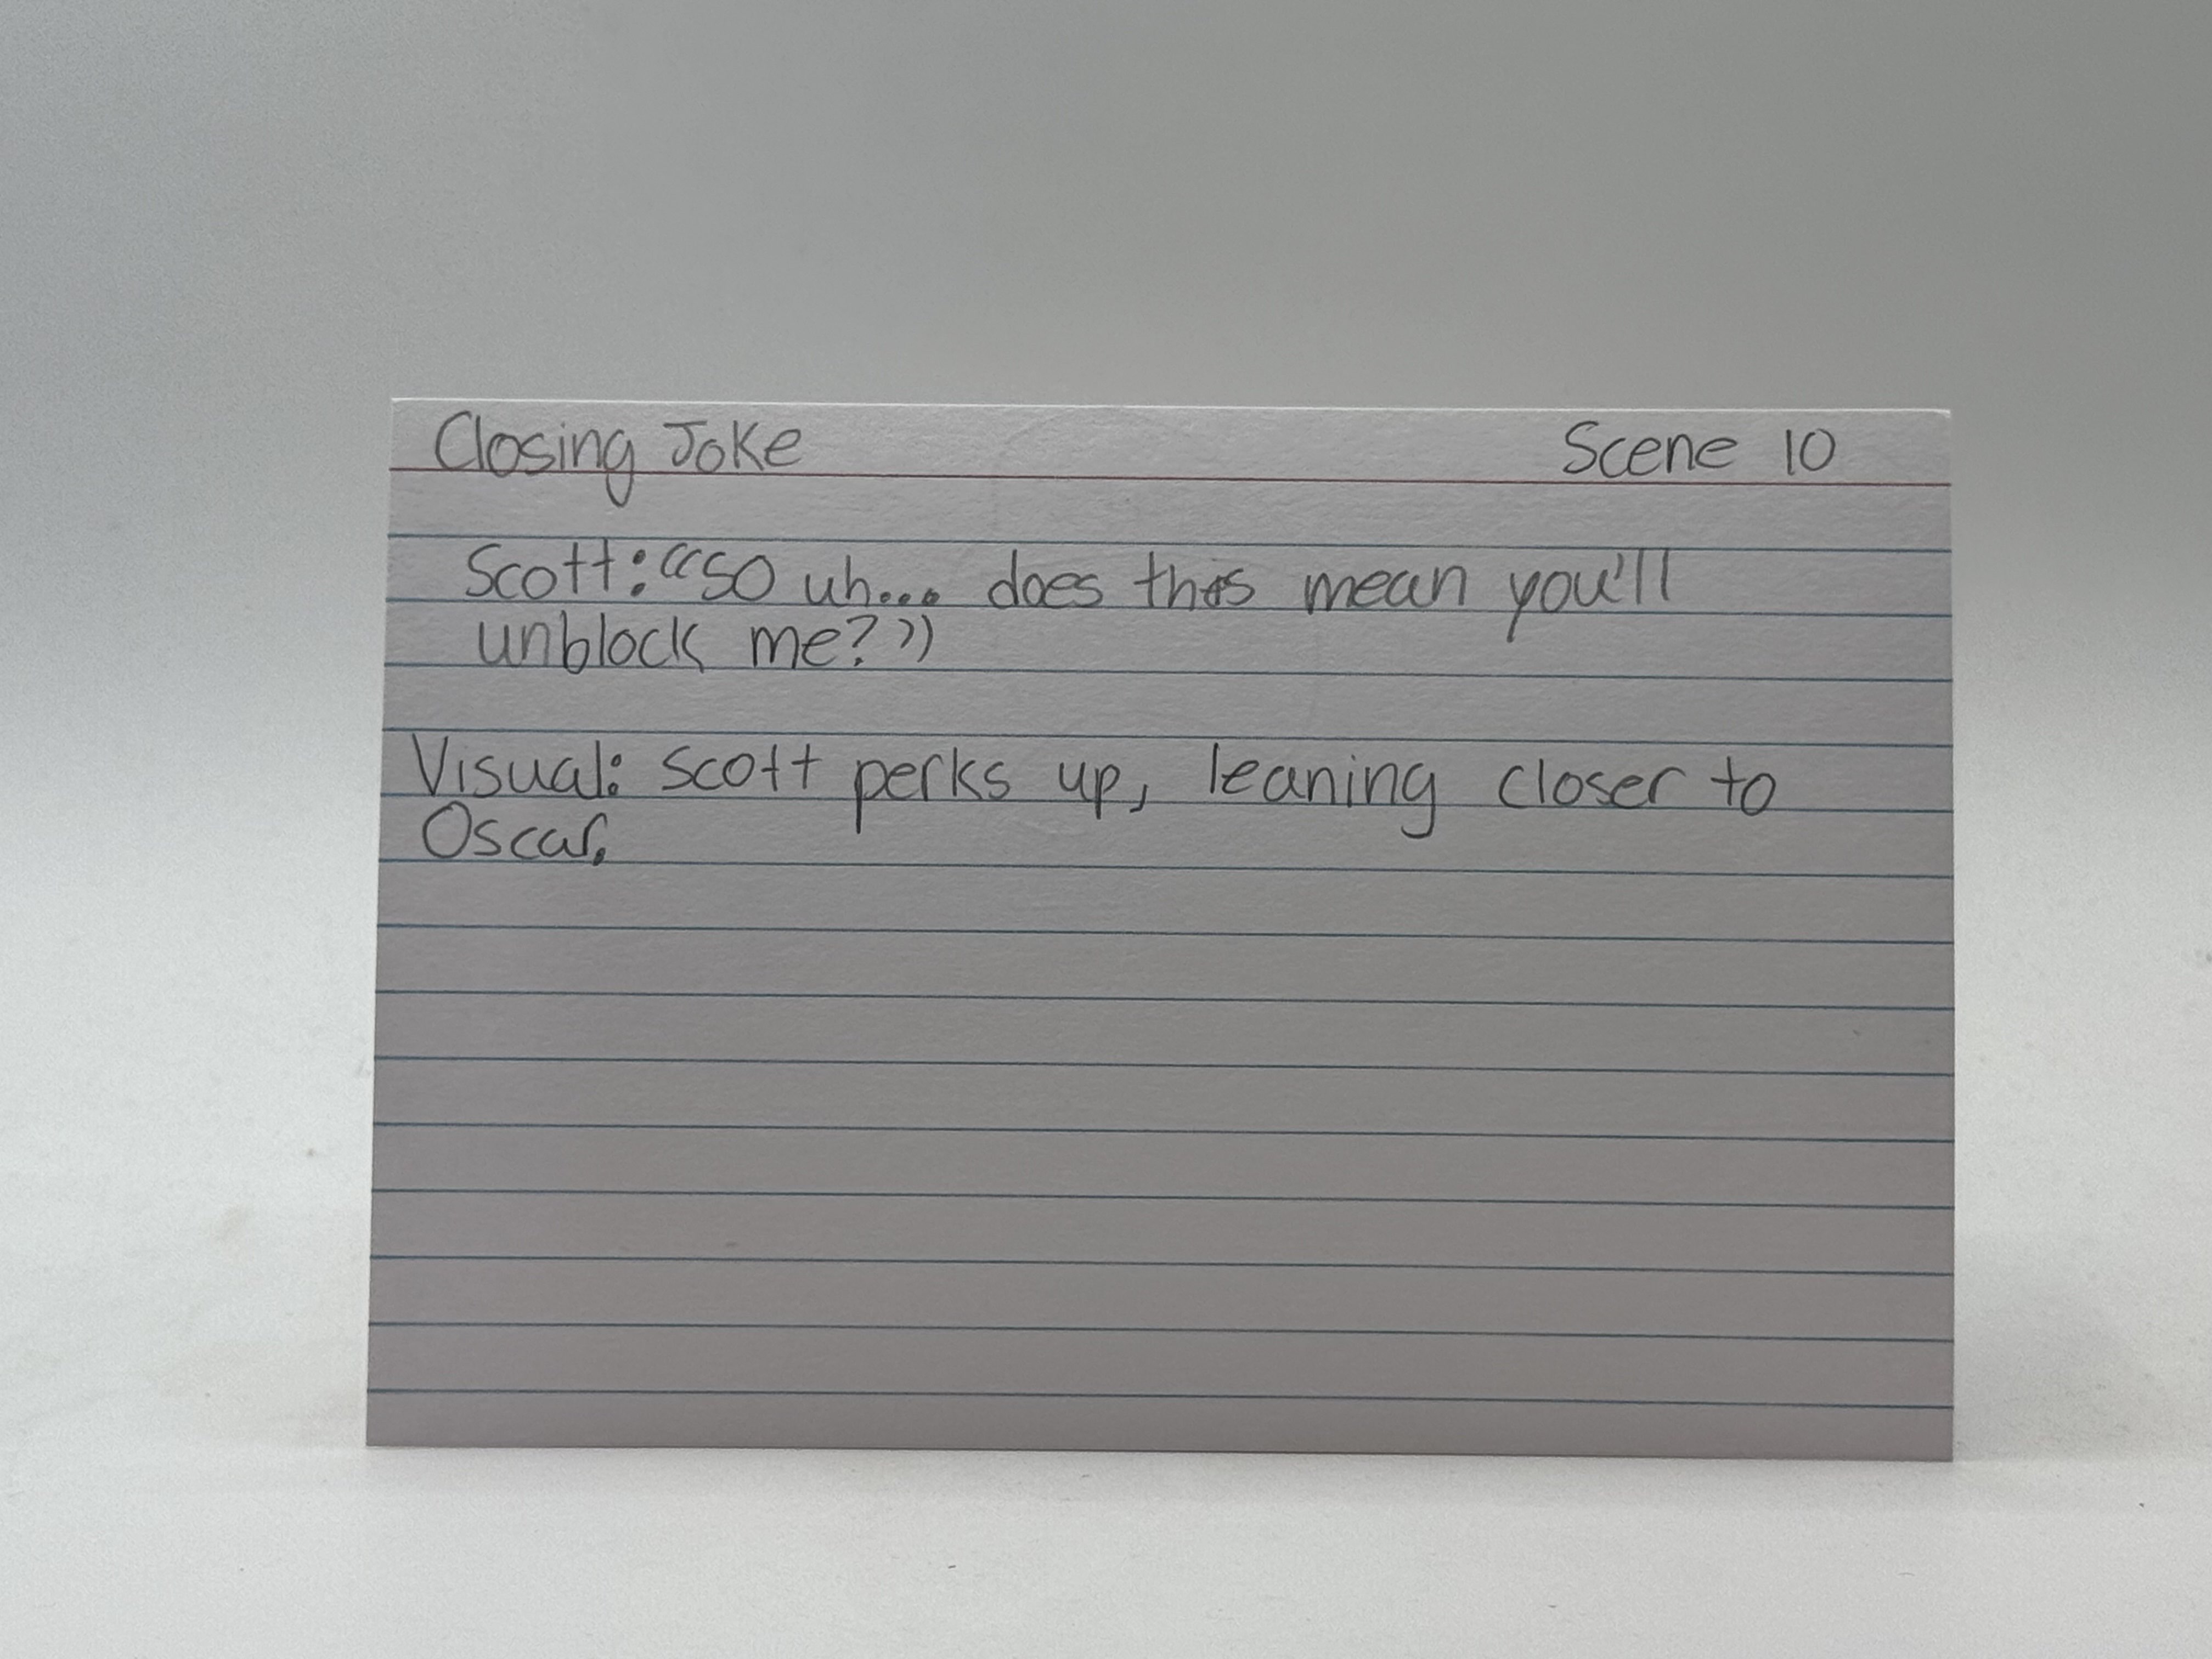 Closing Joke Scene 10
Scott: "So uh... does this mean you'll
unblock me?"
Visual: Scott perks up, leaning closer to
Oscar.